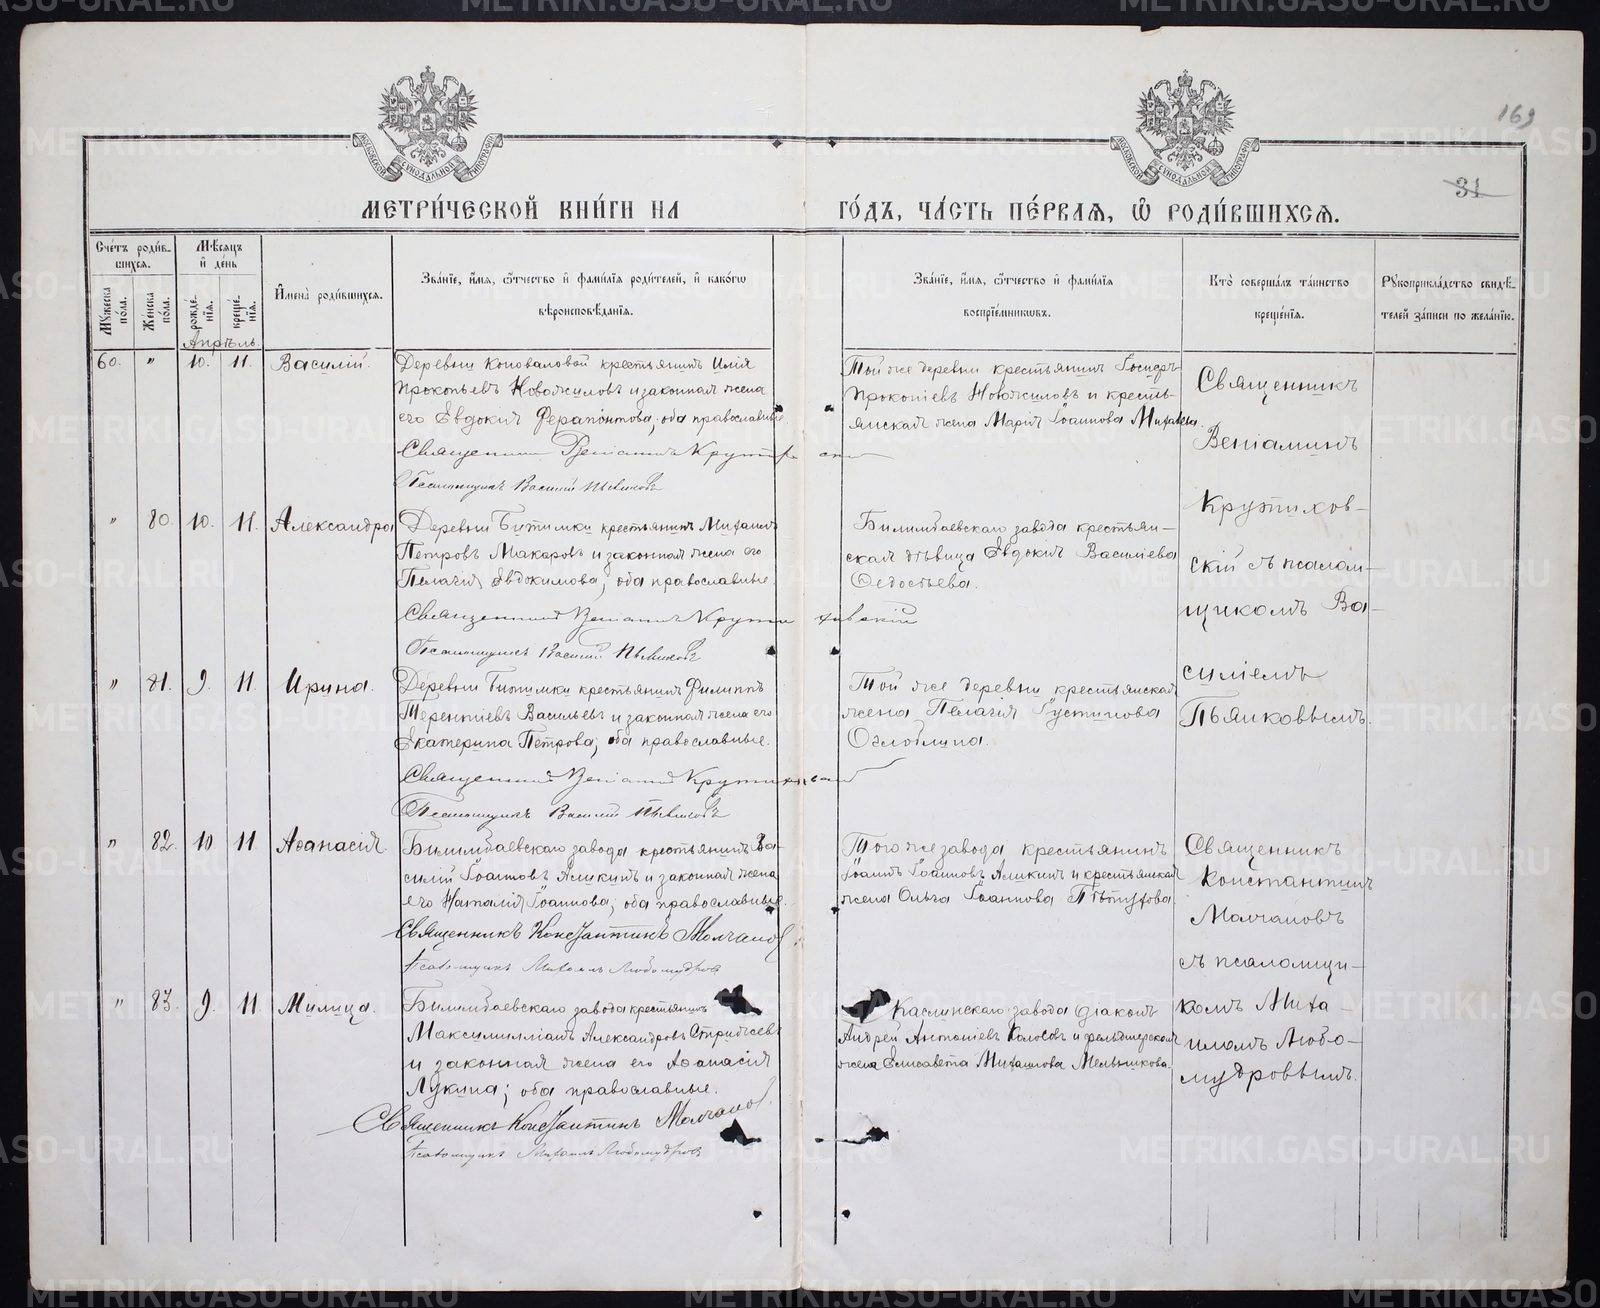 169
31
МОСКОВСКОЙ СѴНОДАЛЬНОЙ ТИПОГРАФІИ
МОСКОВСКОЙ СѴНОДАЛЬНОЙ ТИПОГРАФІИ
МЕТРИ́ЧЕСКОЙ КНИ́ГИ НА
ГО́ДЪ, ЧА́СТЬ ПЕ́РВАЯ, Ѡ РОДИ́ВШИХСЯ.
Сче́тъ роди́в-
шихся.
Мꙋ́жеска по́ла.
Же́нска по́ла.
Мѣ́сяцъ
и҆ де́нь
рожде́-нїя.
креще́-нїя.
И҆мена̀ роди́вшихся.
Зва́нїе, и҆́мя, ѻ҆́тчество и҆ фами́лїя роди́телей, и҆ како́гѡ
вѣроисповѣ́данїя.
Зва́нїе, и҆́мя, ѻ҆́тчество и҆ фами́лїя
воспрїе́мникѡвъ.
Кто̀ соверша́лъ та́инство
креще́нїя.
Рꙋкоприкла́дство свидѣ́-
телей за́писи по жела́нїю.
Апрѣль
60. " 10. 11. Василій.
Деревни Коноваловой крестьянинъ Илія
Прокопьевъ Новожиловъ и законная жена
его Евдокия Ферапонтова; оба православные.
Священникъ Веніаминъ Крутиховскій
Псаломщикъ Василій Пьянковъ
Той же деревни крестьянинъ Іосифъ
Прокопіевъ Новожиловъ и кресть-
янская жена Марія Іоаннова
Священникъ
Веніаминъ
Крутихов-
скій съ псалом-
щикомъ Ва-
силіемъ
Пьянковымъ.
" 80. 10. 11. Александра
Деревни Битимки крестьянинъ Михаилъ
Петровъ Макаровъ и законная жена его
Пелагія Евдокимова; оба православные.
Священникъ Веніаминъ Крутиховскій
Псаломщикъ Василій Пьянковъ
Билимбаевскаго завода крестьян-
ская дѣвица Евдокия Василіева
Ѳедосѣева.
" 81. 9. 11. Ирина.
Деревни Битимки крестьянинъ Филиппъ
Терентіевъ Васильевъ и законная жена его
Екатерина Петрова; оба православные.
Священникъ Веніаминъ Крутиховскій
Псаломщикъ Василій Пьянковъ
Той же деревни крестьянская
жена Пелагія Іустинова
Оглоблина.
" 82. 10 11. Аѳанасія.
Билимбаевскаго завода крестьянинъ Ва-
силій Іоанновъ Аликинъ и законная жена
его Наталія Іоаннова; оба православные.
Священникъ Константинъ Молчановъ
Псаломщикъ Михаилъ Любомудровъ
Того же завода крестьянинъ
Іоаннъ Іоанновъ Аликинъ и крестьянская
жена Ольга Іоаннова Пѣтухова.
Священникъ
Константинъ
Молчановъ
съ псаломщи-
комъ Миха-
иломъ Любо-
мудровымъ.
" 83. 9. 11. Милица.
Билимбаевскаго завода крестьянинъ
Максимилліанъ Александровъ Стрижевъ
и законная жена его Аѳанасія
Лукина; оба православные.
Священникъ Константинъ Молчановъ.
Псаломщикъ Михаилъ Любомудровъ
Каслинскаго завода діаконъ
Андрей Антоніевъ Колосовъ и фельдшерская
жена Елисавета Михаилова Мельникова.